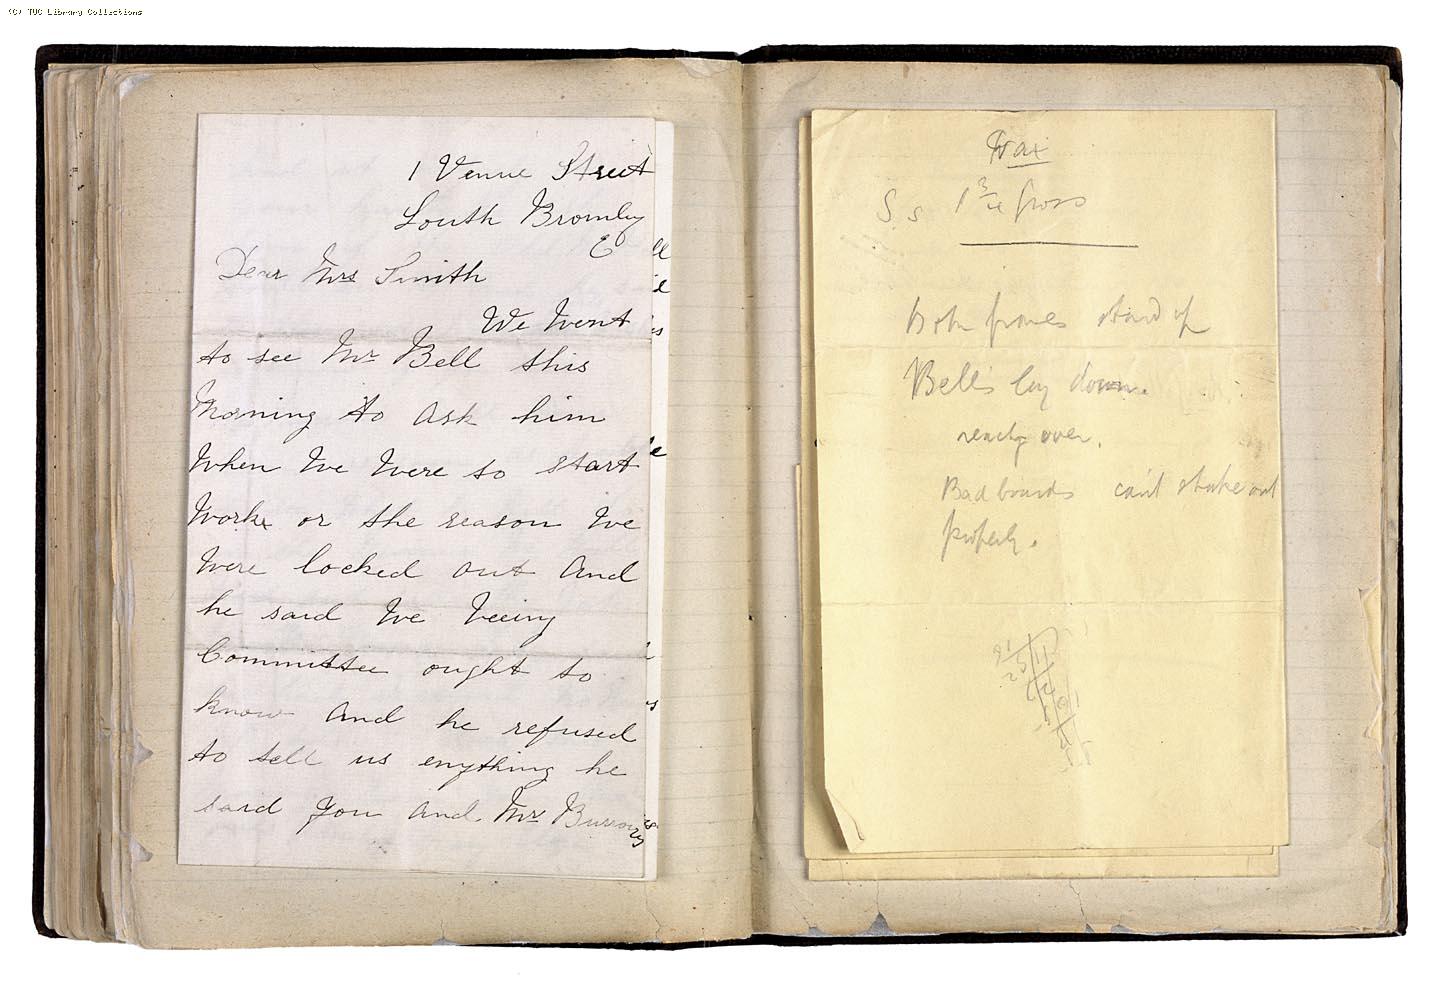 (C) TUC Library Collections
1 Venue Street
South Bromley
E
Dear Mrs Smith
We Went
to see Mr Bell this
Morning to ask him
When We Were to start
Work or the reason We
Were locked out and
he said We being
Committee ought to
know and he refused
to tell us enything he
said you and Mr Burrows
Wax
S s 1 3/4 Gross
Both frames stand up
Bell's lay down.
ready over.
Bad boards can't shake out
properly.